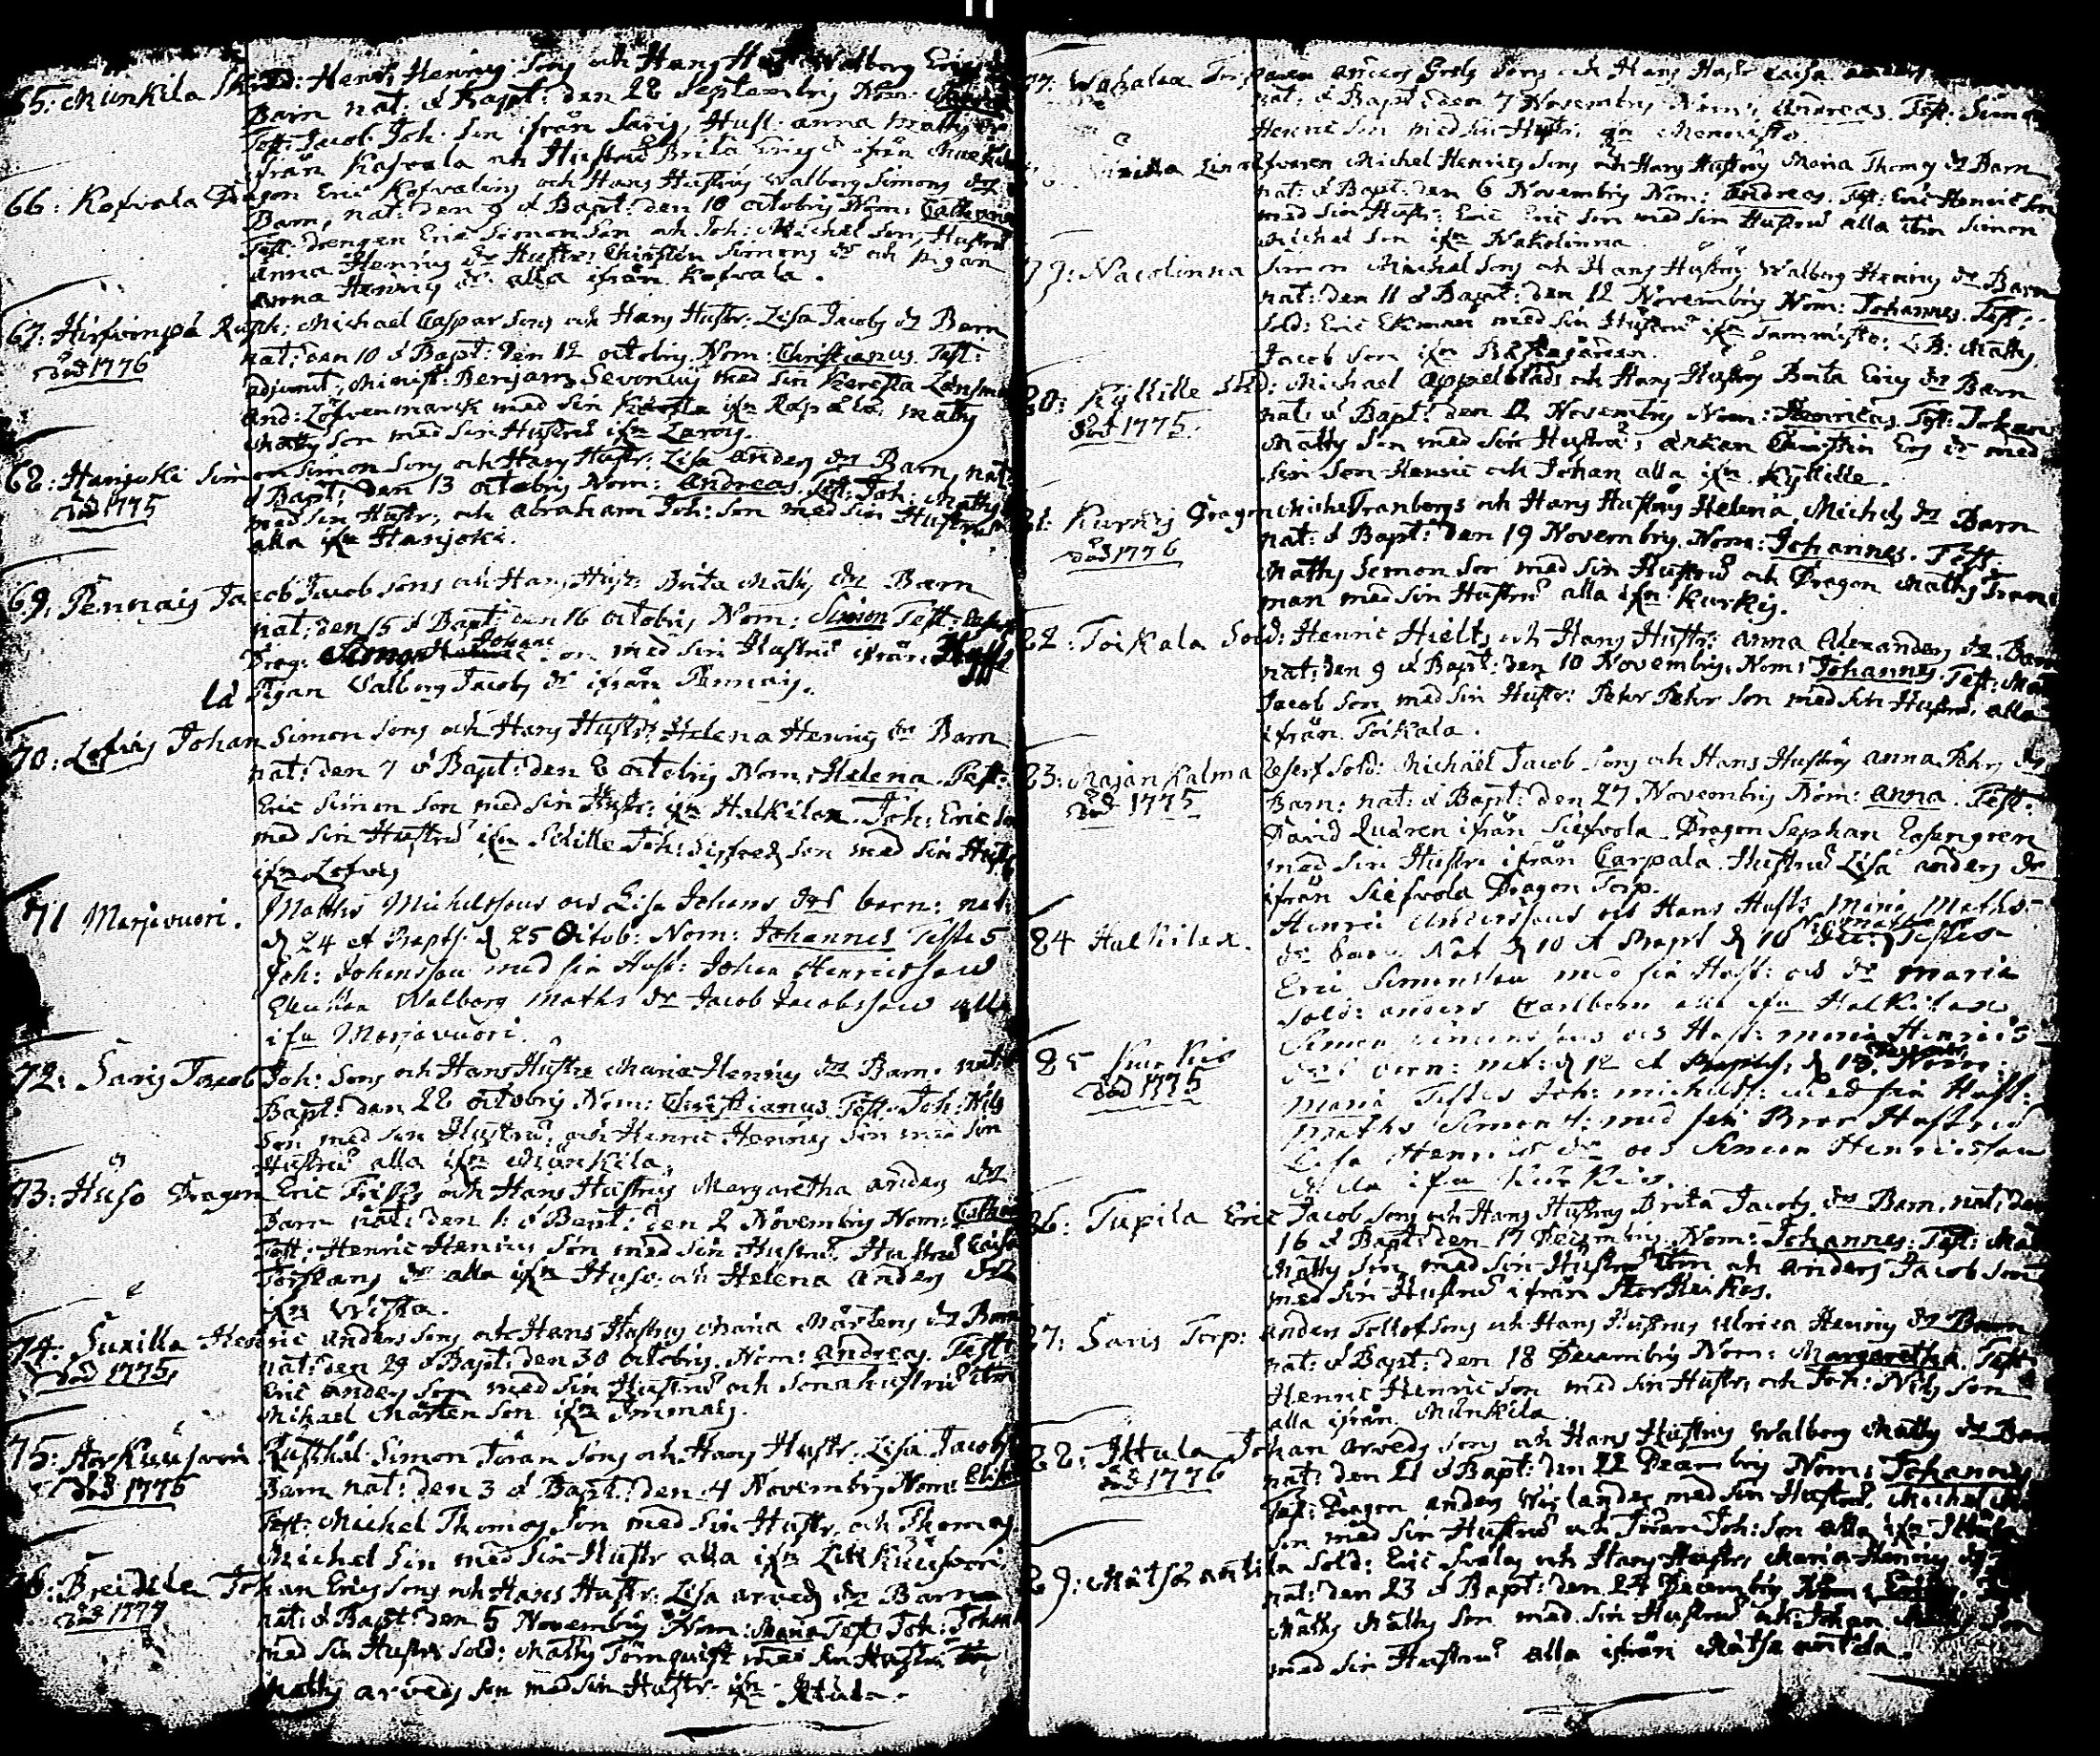 65: Munkila Sold: Henr: Henrics Sons och Hans Hust: Walborg Erics
Barn nat: & Bapt: den 28 Septembris Nom:
Test: Jacob Joh: Son ifrån Saris, Hust: Anna Matts dr
ifrån Kofvala och Hustru Brita Erics dr ifrån
66: Kofvala Dragon Eric Kofvalins och Hans Hustrus Walborg Simons drs
Barn, nat: den 9 & Bapt: den 10 octobris Nom: Catharina
Test: Drengen Eric Simon Son och Joh: Michel Son, Hustru
Anna Henrics dr Hustr: Christin Simons dr och Pigan
Anna Henrics dr alla ifrån Kofvala.
67: Hirfvinpå Rusth: Michael Caspar Sons och Hans Hustr: Lisa Jacobs dr Barn
död 1776
nat: den 10 & Bapt: den 12 octobris Nom: Christianus Test:
adjunct: Minist: Benjam: Sevonius med sin Kæresta Länsman
And: Löfvenmarck med sin Kæresta ifn Rapala: Matts
Matts Son med sin Hustru ifn Zarvis.
68: Hanjoki Simon Simon Sons och Hans Hustr: Lisa Anders drs Barn, nat:
död 1775
& Bapt: den 13 octobris Nom: Andreas Test: Joh: Matts
med sin Hustr: och Abraham Joh: Son med sin Hustru
alla ifn Hanjoki.
69: Pennais Jacob Jacob Sons och Hans Hustr: Brita Matts drs Barn
nat: den 15 & Bapt: den 16 octobris Nom: Simon Test:
Drag: Simon Johans son med sin Hustru ifrån
la Pigan Walborg Jacobs dr ifrån Pennais.
70: Lofvis Johan Simon Sons och Hans Hustr: Helena Henrics drs Barn
nat: den 7 & Bapt: den 8 octobris Nom: Helena. Test:
Eric Simon Son med sin Hustr: ifn Halkilax. Joh: Eric Son
med sin Hustru ifn Sikille Joh: Sigfreds Son med sin Hustr
ifn Lofvis
71 Marjavuori. Matths Michelssons och Lisa Johans drs barn: nat:
d 24 et Bapts: d 25 Octob: Nom: Johannes Testes
Joh: Johansson med sin Hust: Johan Henricsson
Walborg Maths dr Jacob Jacobsson alla
ifn Marjavuori.
72: Saris Jacob Joh: Sons och Hans Hustru Maria Henrics drs Barn. nat
Bapt: den 28 octobris Nom: Christianus Test: Joh: Nils
Son med sin Hustru: och Henric Henrics Son med sin
Hustru alla ifn Munkila.
73: Huso Dragon Eric Frisks och Hans Hustrus Margaretha Anders drs
Barn nat: den 1: & Bapt: den 2 Novembris Nom: Cathar
Test: Henric Henrics Son med sin Hustru. Hustru Caisa
Torstans dr alla ifn Huso. och Helena Anders dr
ifn Wista.
74: Suxilla Henric Anders Sons och Hans Hustrus Maria Mårtens drs Barn
död 1775
nat: den 29 & Bapt: den 30 octobris. Nom: Andreas. Test:
Eric Anders Son med sin Hustru och Sonahustru item
Mikael Mårten Son ifn Immais.
75: Storkuusvori Rusthål: Simon Jöran Sons och Hans Hustr: Lisa Jacobs
död 1776
Barn nat: den 3 & Bapt: den 4 Novembris Nom:
Test: Michel Thomas Son med sin Hustr. och Thomas
Michel Son med sin Hustr alla ifn Lillkuusvori
76: Johan Erics Sons och Hans Hustr: Lisa Arveds drs Barn
död 1774
nat: & Bapt: den 5 Novembris Nom: Maria Test: Joh: Johan
med sin Hustru Sold: Matts Törnquist med sin Hustru
Matts Arveds Son med sin Hustr ifn
77: Wohalva Anders Sons och Hans Hustr Caisa Anders
nat: & Bapt: den 7 Novembris Nom: Andreas Test: Simon
Henric Son med sin Hustr: ifn
78: Suxilla Michel Henrics Sons och Hans Hustrus Maria Thomas drs Barn
nat: & Bapt: den 6 Novembris Nom: Andreas Test: Eric Henric Son
med sin Hustr: Eric Eric Son med sin Hustru alla item Simon
Michel Son ifn Nakolinna
79: Nacolinna Simon Michel Sons och Hans Hustrus Walborg Henrics drs Barn
nat: den 11 & Bapt: den 12 Novembris Nom: Johannes Test:
Sold: Eric Ekman med sin Hustru ifn Tammisto: L:B: Matts
Jacob Son ifn
80: Kyllille Sold: Michael Appelblads och Hans Hustrus Brita Erics drs Barn
död 1775
nat: & Bapt: den 12 Novembris Nom: Henricus. Test: Johan
Matts Son med sin Hustru; Änkan Christin Ers dr med
sin Son Henric och Johan alla ifn Kyllille.
81: Kurkis Dragon Michel Tranbergs och Hans Hustrus Helena Michels drs Barn
död 1776
nat: & Bapt: den 19 Novembris Nom: Johannes. Test:
Matts Simon Son med sin Hustru och Dragon Matts Tran
man med sin Hustru alla ifn Kurkis.
82: Toikala Sold: Henric Hielts och Hans Hustr: Anna Alexanders drs Barn
nat: den 9 & Bapt: den 10 Novembris Nom: Johannes. Test: Mat
Jacob Son, med sin Hustr: Pehr Pehr Son med sin Hustru, alla
ifrån Toikala.
83: Majankalma Reserf Sold: Michael Jacob Sons och Hans Hustrus Anna Pehrs drs
död 1775
Barn: nat: & Bapt: den 27 Novembris Nom: Anna. Test:
David Quaren ifrån Siefvola. Dragon Sephan
med sin Hustru ifrån Carpala. Hustru Lisa Anders dr
ifrån Siefvola Dragon Torp.
84 Halkilax. Henric Anderssons och Hans Husts: Maria Maths
drs barn Nat d 10 et Bapt d 10 Dec: Testes
Eric Simonsson med sin Hust: och dr Maria
Sold: Anders Carlbom alla ifn Halkilax
85 Kurkis Simon Simonssons och Hust: Maria Henrics
död 1775
drs barn: nat: d 12 et Bapts: d 13 Nom:
Maria Testes Joh: Michelss: med sin Hust:
Maths Simons: med sin Bror Hustru
Lisa Henrics dr och Simon Henricsson
alla ifn Kurkis.
86: Tupila Eric Jacob Sons och Hans Hustrus Brita Jacobs drs Barn. nat: den
16 & Bapt: den 17 Decembris Nom: Johannes: Test: Mat
Matts Son med sin Hustru item och Anders Jacob Son
med sin Hustru ifrån
87: Saris Torp: Anders Tollof Sons och Hans Hustrus Ulrica Henrics drs Barn
nat: & Bapt: den 18 Decembris Nom: Margaretha. Test:
Henric Henric Son med sin Hustr, och Joh: Nils Son
alla ifrån Munkila
88: Ittula Johan Arveds Sons och Hans Hustrus Walborg Matts drs Barn
död 1776
nat: den 21 & Bapt: den 22 Decembris Nom: Johannes
Test: Dragon Anders Wirlander med sin Hustru. Michel
Son med sin Hustru och Jöran Joh: Son alla ifn Ittula
89: Matsä antila Sold: Eric Svalas och Hans Hustr, Maria Henrics drs
nat: den 23 & Bapt: den 24 Decembris Nom:
Matts Matts Son med sin Hustru och Johan Matts Son
med sin Hustru alla ifrån Mätsä antila.